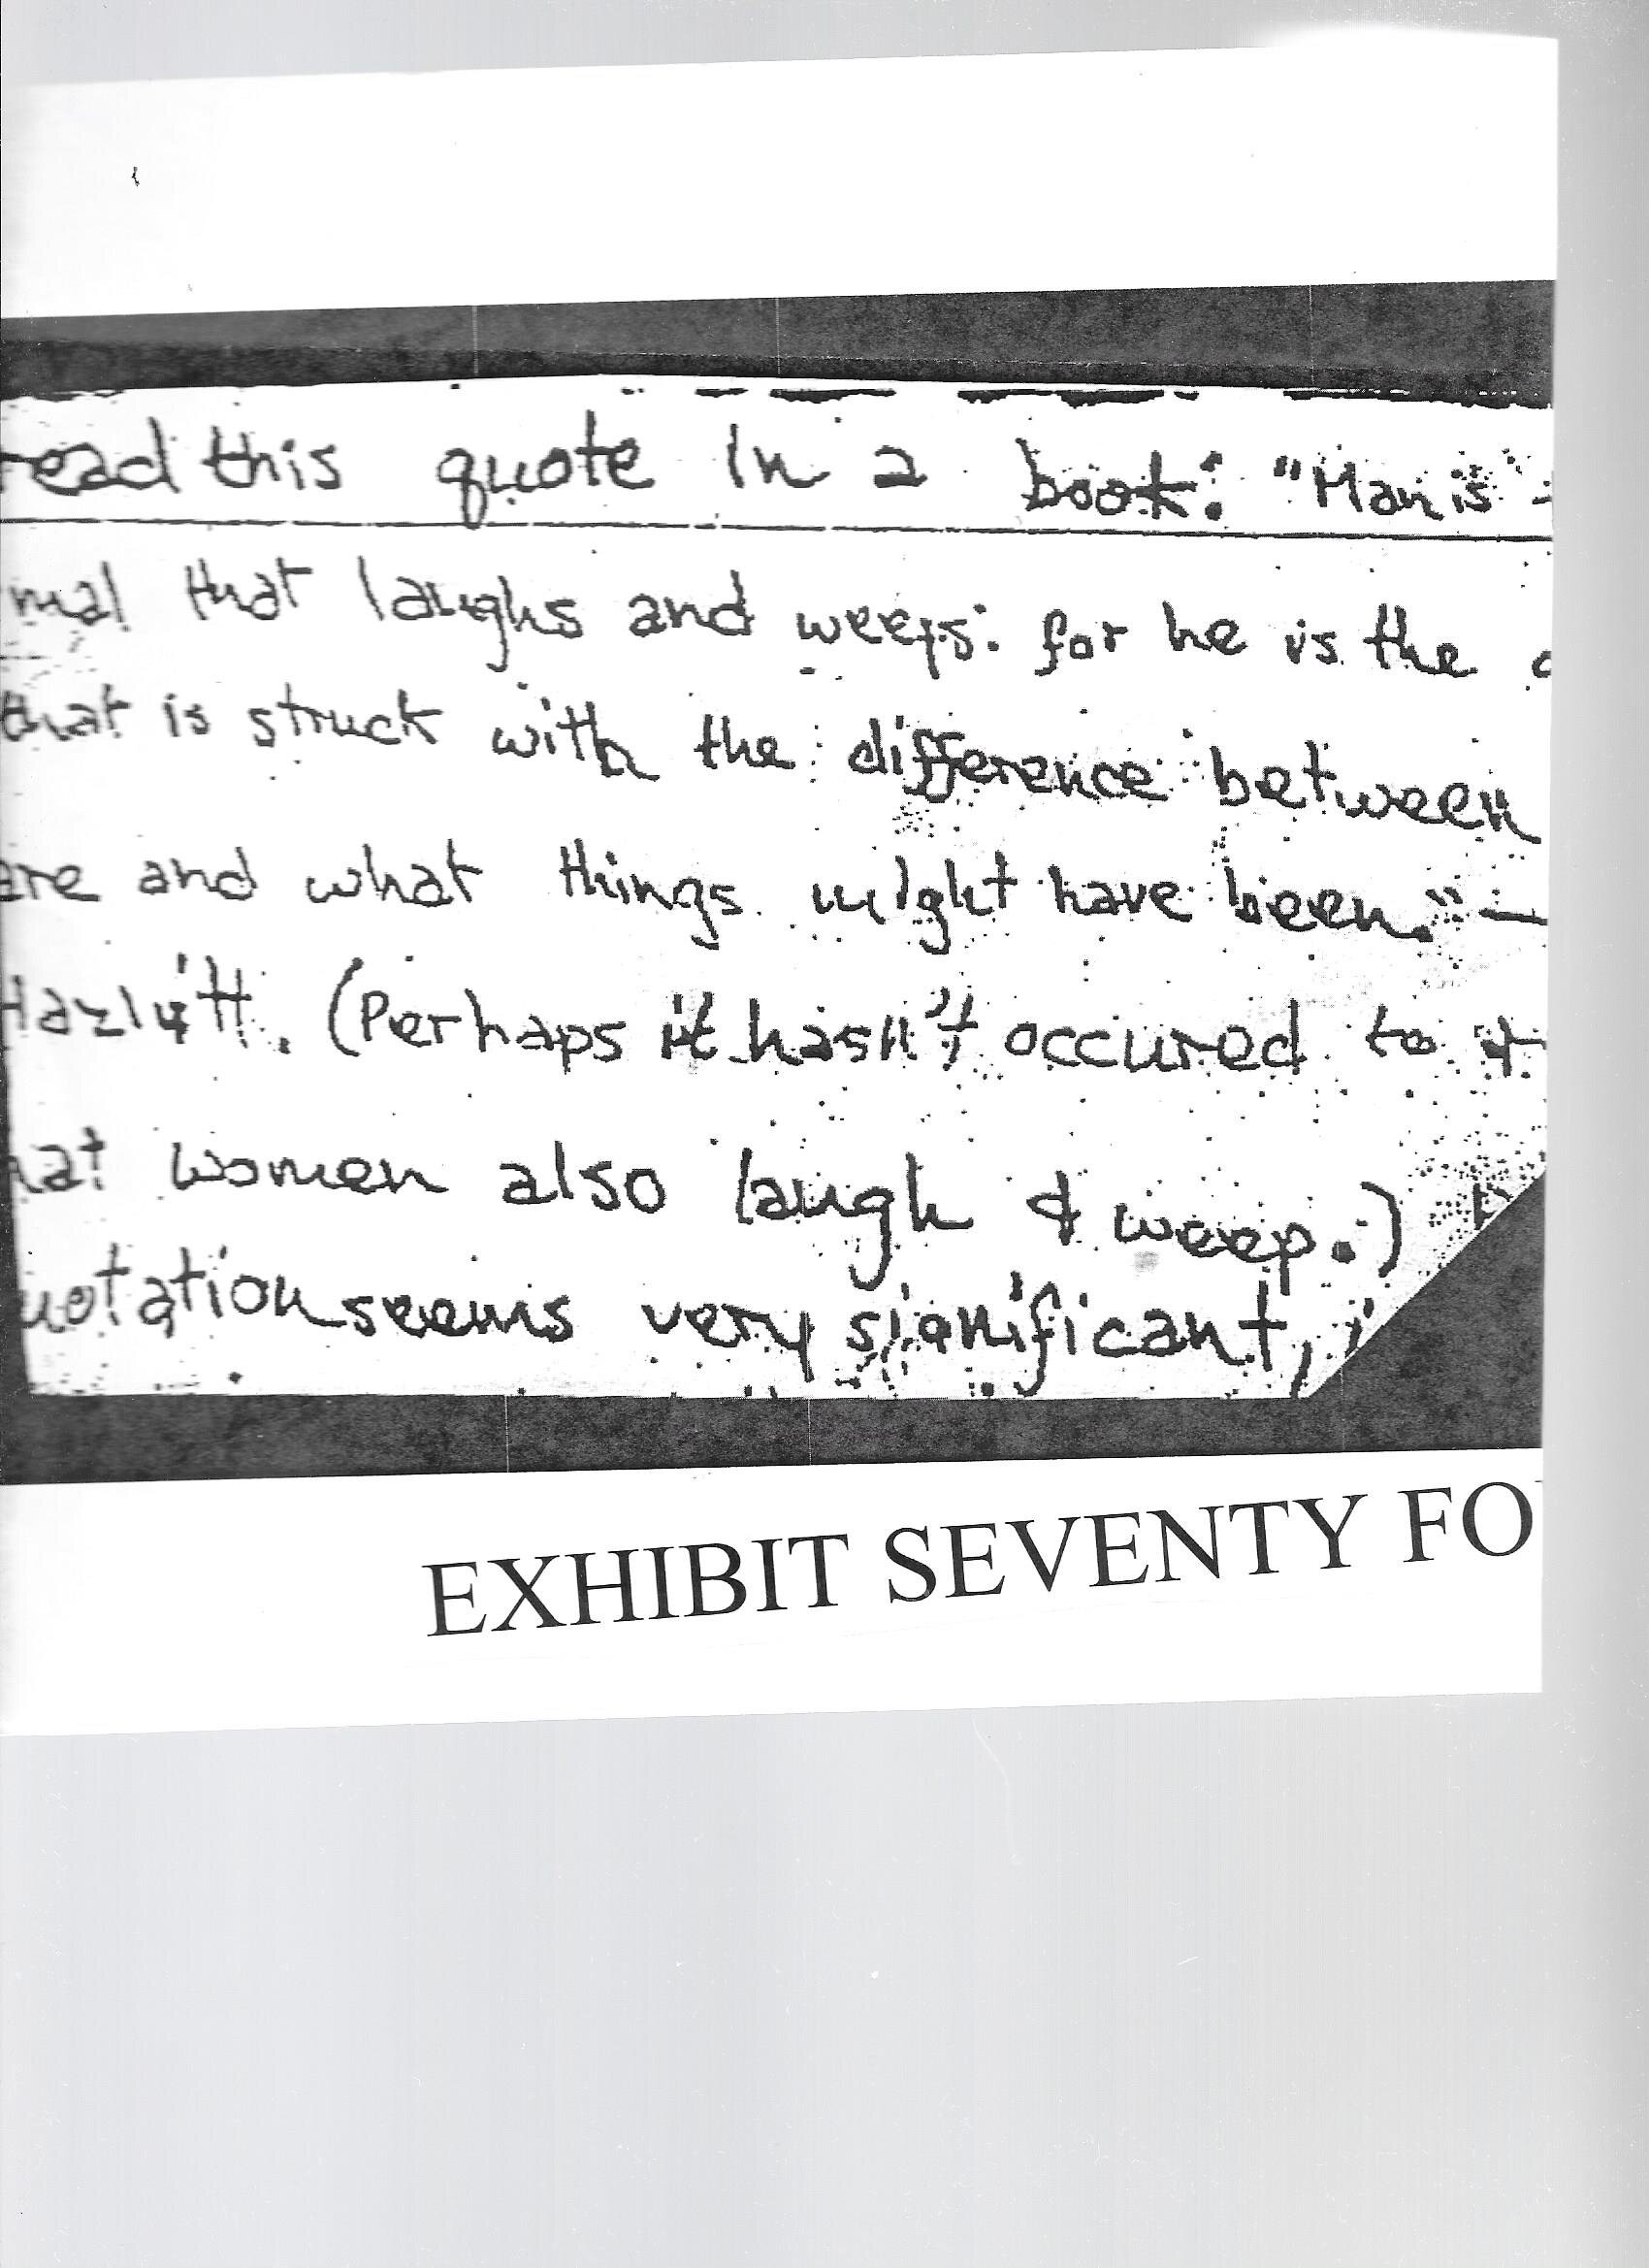 read this quote in a book: "Man is
mal that laughs and weeps: for he is the
that is struck with the difference between
are and what things might have been." —
Hazlitt. (Perhaps it hasn't occured to
hat women also laugh & weep.)
uotation seems very significant, i
EXHIBIT SEVENTY FO